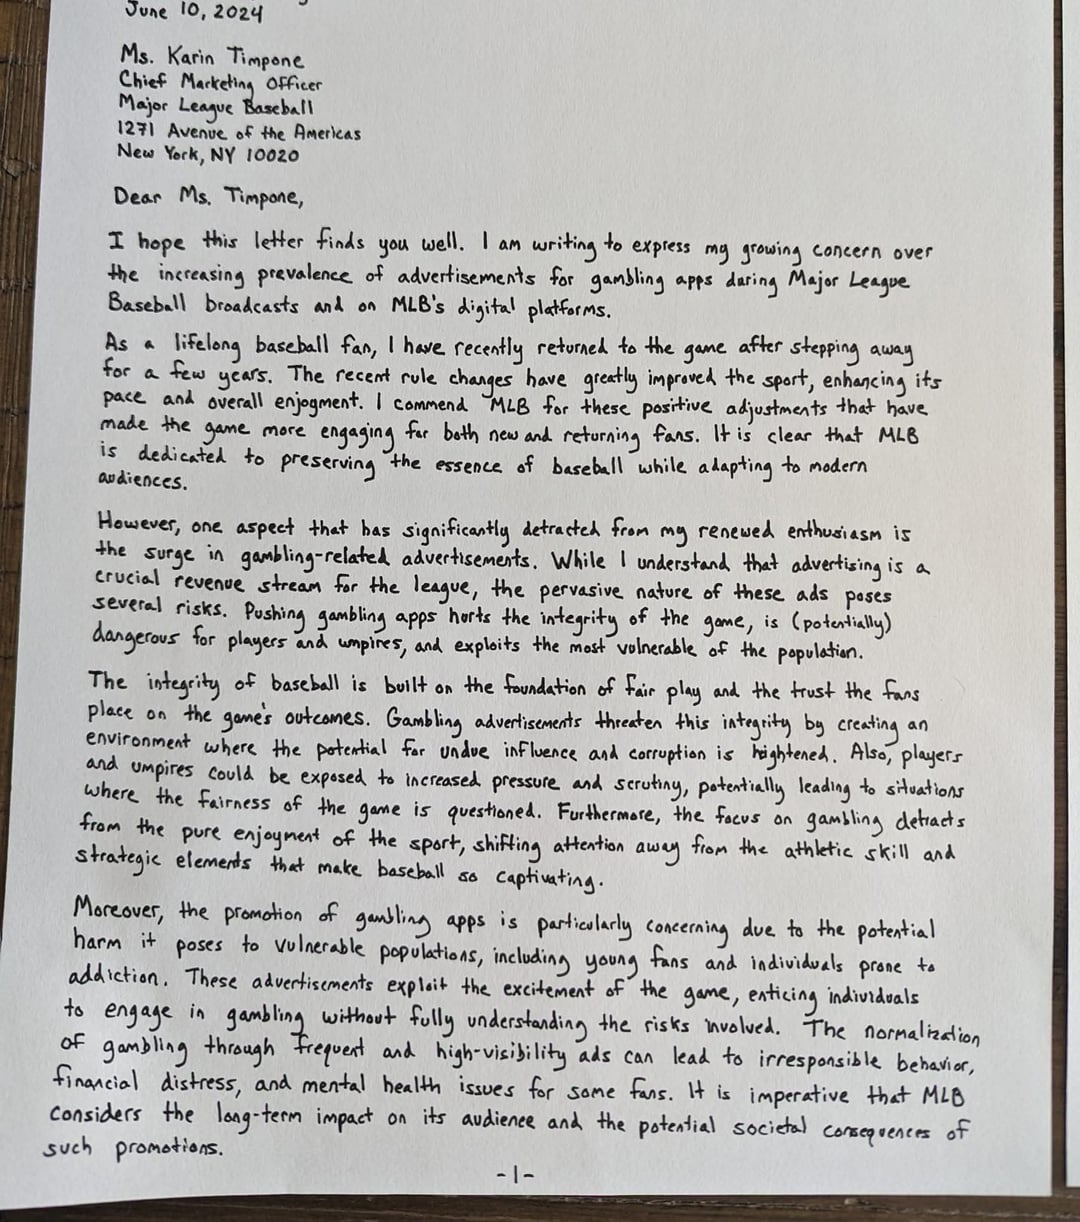 June 10, 2024
Ms. Karin Timpone
Chief Marketing Officer
Major League Baseball
1271 Avenue of the Americas
New York, NY 10020
Dear Ms. Timpone,
I hope this letter finds you well. I am writing to express my growing concern over
the increasing prevalence of advertisements for gambling apps during Major League
Baseball broadcasts and on MLB's digital platforms.
As a lifelong baseball fan, I have recently returned to the game after stepping away
for a few years. The recent rule changes have greatly improved the sport, enhancing its
pace and overall enjoyment. I commend MLB for these positive adjustments that have
made the game more engaging for both new and returning fans. It is clear that MLB
is dedicated to preserving the essence of baseball while adapting to modern
audiences.
However, one aspect that has significantly detracted from my renewed enthusiasm is
the surge in gambling-related advertisements. While I understand that advertising is a
crucial revenue stream for the league, the pervasive nature of these ads poses
several risks. Pushing gambling apps hurts the integrity of the game, is (potentially)
dangerous for players and umpires, and exploits the most vulnerable of the population.
The integrity of baseball is built on the foundation of fair play and the trust the fans
place on the game's outcomes. Gambling advertisements threaten this integrity by creating an
environment where the potential for undue influence and corruption is heightened. Also, players
and umpires could be exposed to increased pressure and scrutiny, potentially leading to situations
where the fairness of the game is questioned. Furthermore, the focus on gambling detracts
from the pure enjoyment of the sport, shifting attention away from the athletic skill and
strategic elements that make baseball so captivating.
Moreover, the promotion of gambling apps is particularly concerning due to the potential
harm it poses to vulnerable populations, including young fans and individuals prone to
addiction. These advertisements exploit the excitement of the game, enticing individuals
to engage in gambling without fully understanding the risks involved. The normalization
of gambling through frequent and high-visibility ads can lead to irresponsible behavior,
financial distress, and mental health issues for some fans. It is imperative that MLB
considers the long-term impact on its audience and the potential societal consequences of
such promotions.
-1-